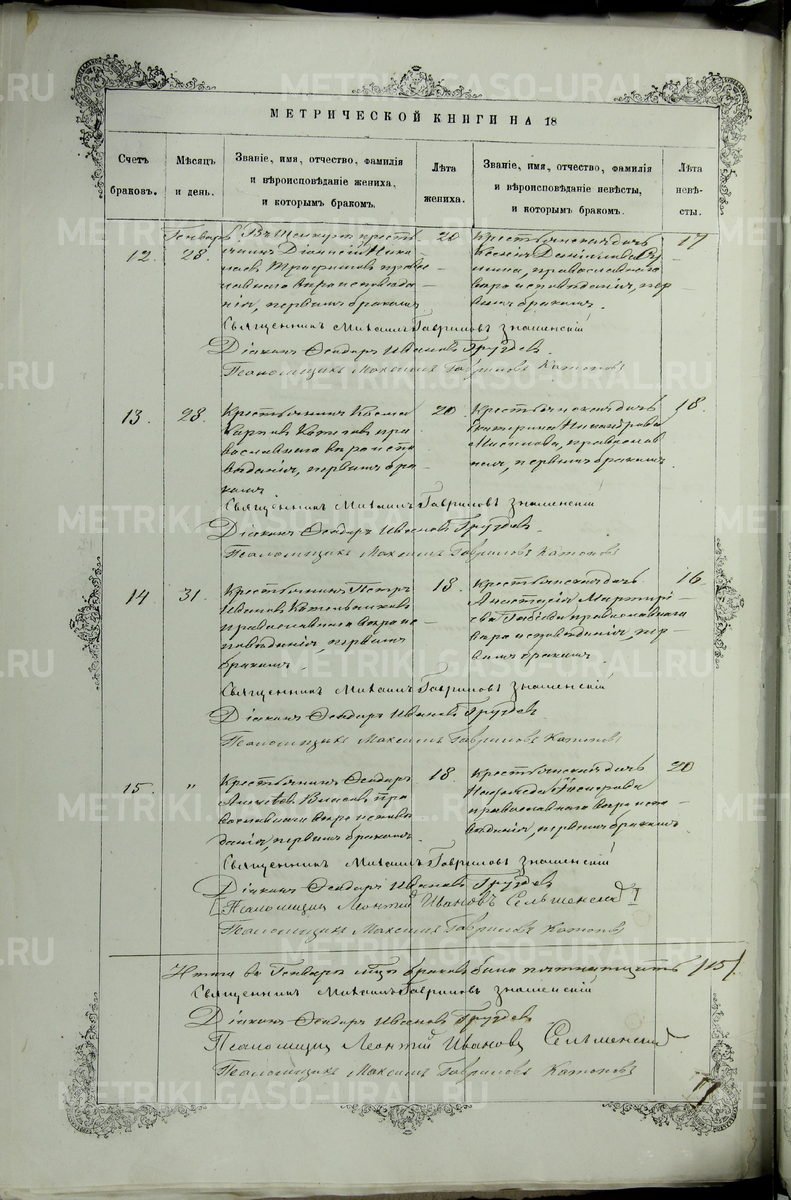 МЕТРИЧЕСКОЙ КНИГИ НА 18
Счетъ браковъ.
Мѣсяцъ и день.
Званіе, имя, отчество, фамилія и вѣроисповѣданіе жениха, и которымъ бракомъ.
Лѣта жениха.
Званіе, имя, отчество, фамилія и вѣроисповѣданіе невѣсты, и которымъ бракомъ.
Лѣта невѣсты.
12.
Генварь 28
кресть
янинъ Діонисій Ника
Трофимовъ право
славнаго вѣроисповѣда
нія, первымъ бракомъ
20
Крестьянская дочь
Даніилова
православнаго
вѣроисповѣданія, пер
вымъ бракомъ.
17
Священникъ Михаилъ Гавриловъ Знаменскій
Діаконъ Ѳеодоръ Ивановъ Груздевъ.
Псаломщикъ Максимъ Гавриловъ
13.
28.
Крестьянинъ Косма
Карповъ пра
вославнаго вѣроиспо
вѣданія, первымъ бра
комъ
20.
Крестьянская дочь
Екатерина
православ
ная, первымъ бракомъ
18.
Священникъ Михаилъ Гавриловъ Знаменскій
Діаконъ Ѳеодоръ Ивановъ Груздевъ.
Псаломщикъ Максимъ Гавриловъ
14
31.
Крестьянинъ Петръ
Ивановъ Котельниковъ
православнаго вѣроис
повѣданія, первымъ
бракомъ.
18.
Крестьянская дочь
Анастасія Мартирі
ева православнаго
вѣроисповѣданія, пер
вымъ бракомъ.
16
Священникъ Михаилъ Гавриловъ Знаменскій
Діаконъ Ѳеодоръ Ивановъ Груздевъ.
Псаломщикъ Максимъ Гавриловъ
15.
"
Крестьянинъ Ѳеодоръ
Алексѣевъ Власовъ, пра
вославнаго вѣроисповѣ
данія, первымъ бракомъ
18.
Крестьянская дочь
Надежда
православнаго вѣроиспо
вѣданія, первымъ бракомъ
20
Священникъ Михаилъ Гавриловъ Знаменскій
Діаконъ Ѳеодоръ Ивановъ Груздевъ
Псаломщикъ Леонтій Ивановъ
Псаломщикъ Максимъ Гавриловъ
Итого въ Генварѣ м-цѣ браковъ было пятнадцать /15/.
Священникъ Михаилъ Гавриловъ Знаменскій
Діаконъ Ѳеодоръ Ивановъ Груздевъ
Псаломщикъ Леонтій Ивановъ
Псаломщикъ Максимъ Гавриловъ
METRIKI.GASO-URAL.RU